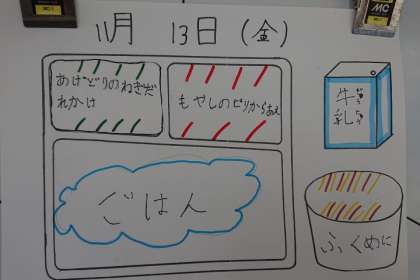 11月 13日 (金)
あげどりのねぎだ
れかけ
もやしのピリからあえ
牛
乳
ごはん
ふくめに
MC